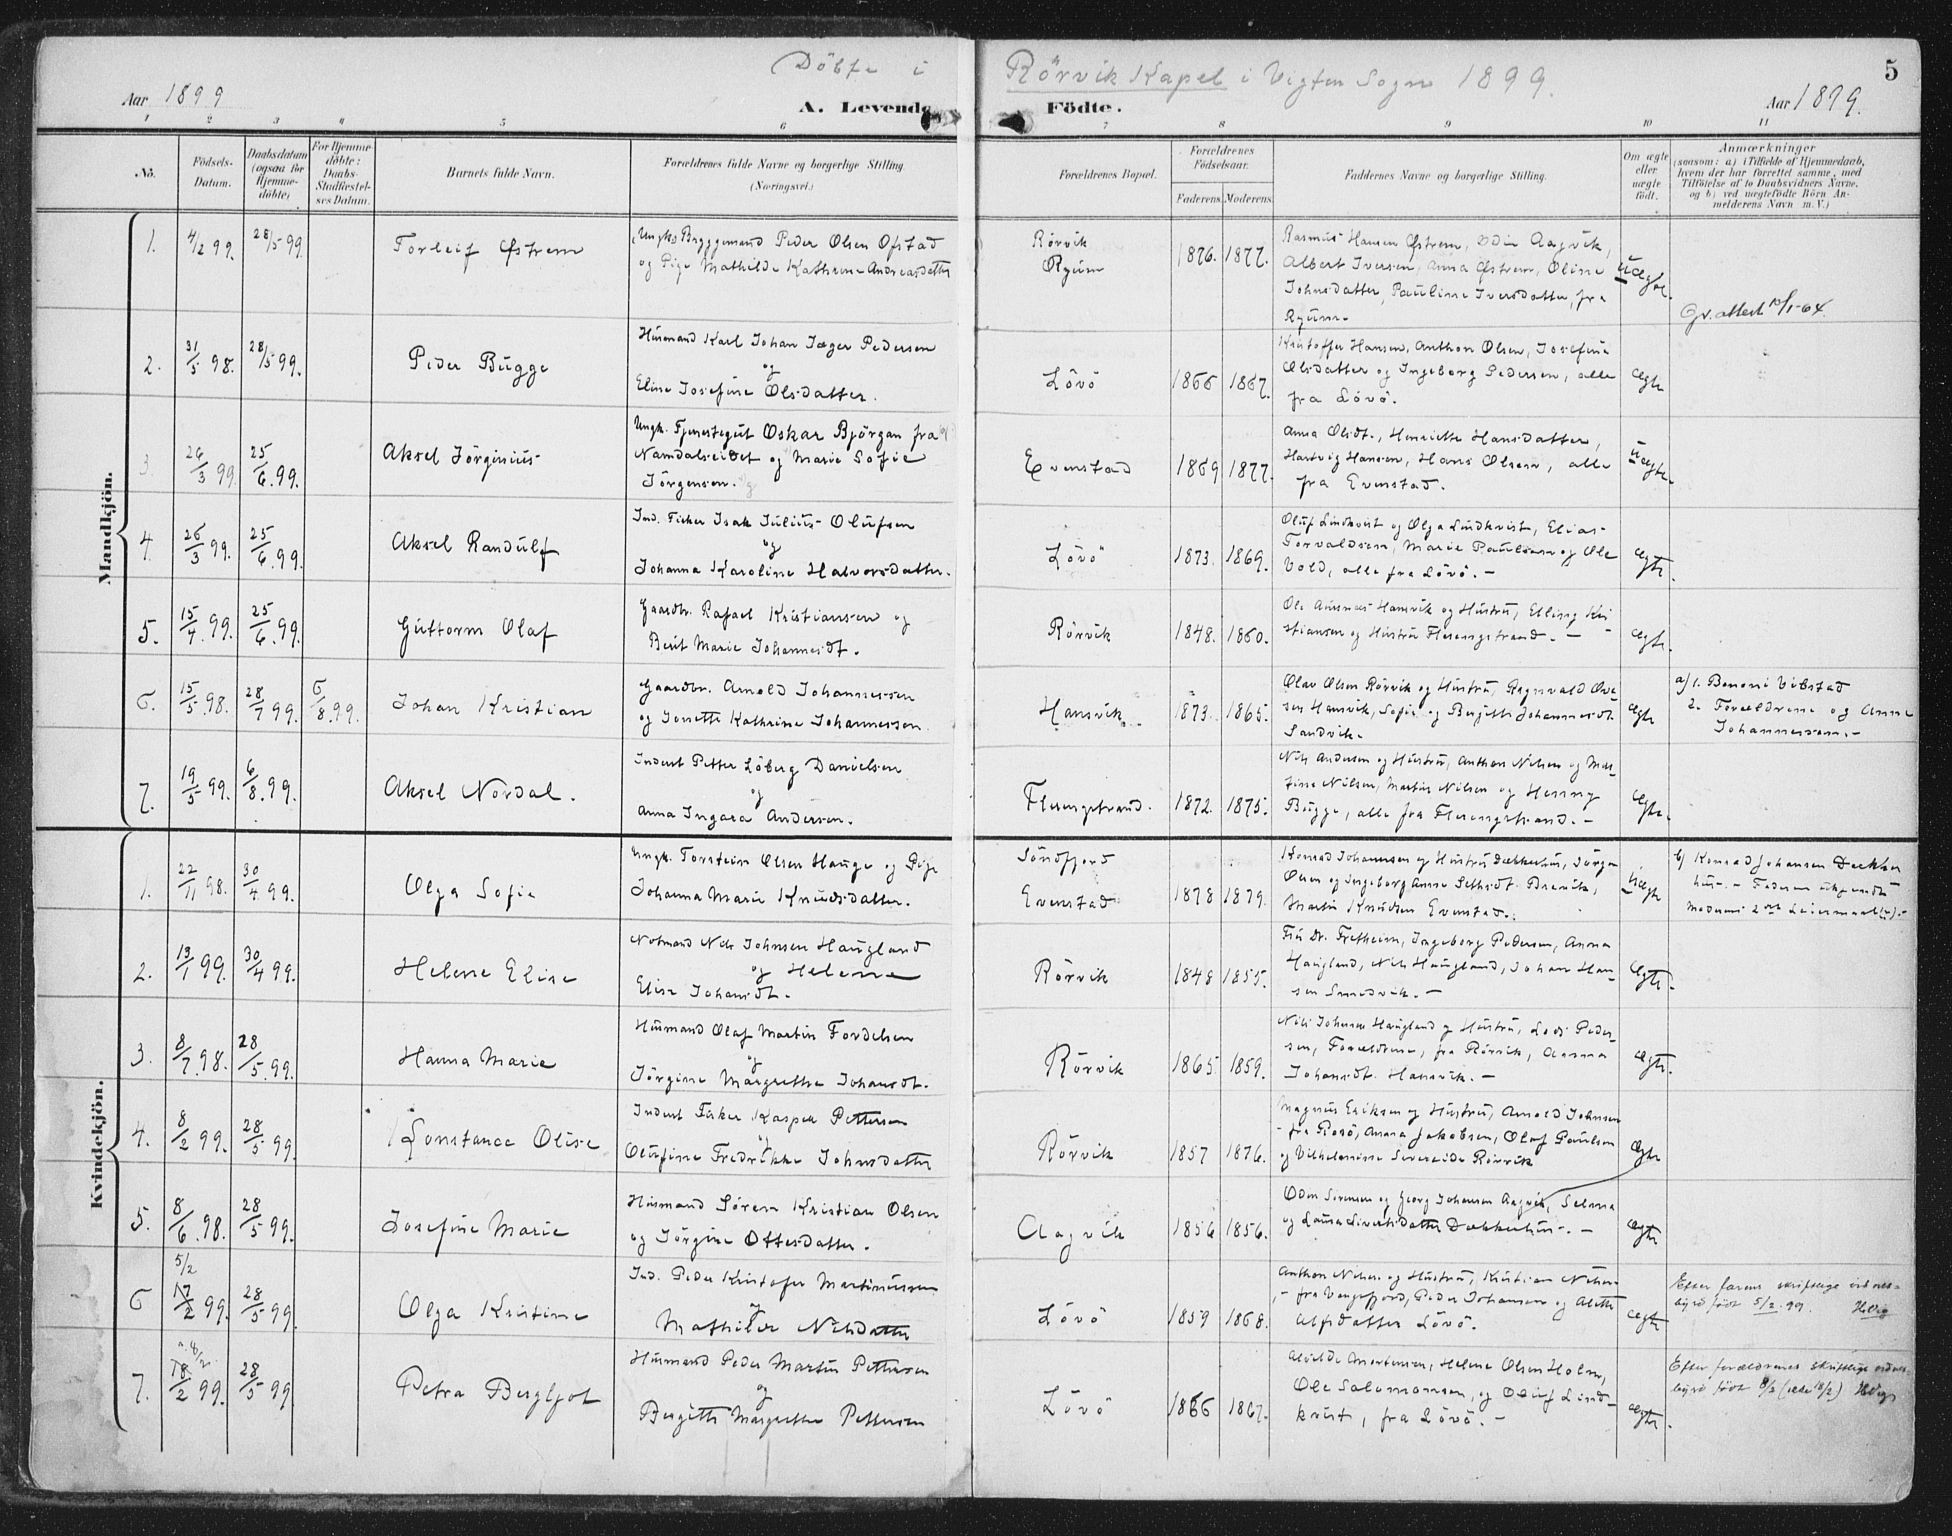 Döbte i Rörvik Kapel i Vigten Sogn 1899.
5
Aar 1899
A. Levende Födte.
Aar 1899.
1 2 3 4 5 6 7 8 9 10 11
No.
Födsels-Datum.
Daabsdatum (ogsaa for Hjemmedöbte)
For Hjemmedöbte: Daabs-Stadfæstelses Datum.
Barnets fulde Navn.
Forældrenes fulde Navne og borgerlige Stilling (Næringsvei.)
Forældrenes Bopæl.
Forældrenes Födselsaar.
Faderens. Moderens.
Faddernes Navne og borgerlige Stilling.
Om ægte eller uægte født.
Anmærkninger
(saasom: a) i Tilfælde af Hjemmedaab,
hvem der har forrettet samme, med
Tilföielse af to Daabsvidners Navne,
og b) ved uegtefödte Börn An-
melderens Navn m. V.)
Mandkjön.
1. 4/2 99. 28/5 99. Torleif Østrem
Ungk. Bryggemand Peder Olsen Ofstad
og Pige Mathilde Kathrine Andreasdatter
Rörvik
Ryum
1876. 1877.
Rasmus Hansen Østrem, Odin Aagvik,
Albert Iversen, Anna Østrem, Oline
Johnsdatter, Pauline Iversdatter, fra
Ryum.
Uægte.
Gv. attest 10/1-64.
2. 31/5 98. 28/5 99. Peder Bugge
Husmand Karl Johan Jæger Pedersen
og
Elise Josefine Olsdatter.
Lövö
1866 1867.
Kristoffer Hansen, Anthon Olsen, Josefine
Olsdatter og Ingeborg Pedersen, alle
fra Lövö.
Ægte
3. 26/3 99. 25/6. 99. Aksel Jörginius
Ungk. Tjenestegut Oskar Björgan fra
Namdalseidet og Marie Sofie
Jörgensen.
Evenstad
1869 1877.
Anna Olsdt., Henriette Hansdatter,
Hartvig Hansen, Hans Olsen, alle
fra Evenstad.
Uægte.
4. 26/3 99. 25/6. 99. Aksel Randulf
Ind. Fisker Isak Julius Olufsen
og
Johanna Karoline Halvorsdatter.
Lövö
1873. 1869.
Oluf Lindkvist og Olga Lindkvist, Elias
Torvaldsen, Marie Paulsen og Ole
Vold, alle fra Lövö. -
Ægte.
5. 15/4. 99. 25/6. 99. Guttorm Olaf
Gaardbr. Rafael Kristiansen og
Berit Marie Johannesdt.
Rörvik
1848. 1860.
Ole Hansvik og Hustru, Elling Kri-
stiansen og Hustru Flerengstrand. -
Ægte.
6. 15/5. 98. 28/7 99. 6/8. 99. Johan Kristian
Gaardbr. Arnold Johannessen
og Jonette Kathrine Johannessen
Hansvik.
1873. 1865.
Olav Olsen Rörvik og Hustru, Ragnvald
Hansvik, Sofie og Berjette Johannesdt.
Sandvik.
Ægte
a/ 1. Benoni Vibstad
2. Forældrene og Anne
Johannessen. -
7. 19/5 99. 6/8. 99. Aksel Nordal.
Inderst Petter Löberg Danielsen
og
Anna Ingara Andersen.
Flerengstrand.
1872. 1875.
Nils Andersen og Hustru, Anthon Nilsen og Mar-
tine Nilsen, Martin Nilsen og Henny
Bugge, alle fra Flerengstrand. -
Ægte.
Kvindekjön.
1. 22/11 98. 30/4 99. Olga Sofie
Ungk. Torstein Olsen Hauge og Pige
Johanna Marie Knudsdatter.
Söndfjord
Evenstad
1878 1879.
Konrad Johansen og Hustru Dækkerhus, Jörgen
Olsen og Ingeborg Anna Brevik,
Martin Knudsen Evenstad.
Uægte
b) Konrad Johansen Dækker
hus. - Faderen
Moderens 2det Leiermaal
2. 13/1 99. 30/4 99. Helene Elise
Notmand Nils Johnsen Haugland
og Helene
Elise Johansdt.
Rörvik
1848 1855.
Fru Dr. Fretheim, Ingeborg Pedersen, Anna
Haugland, Nils Haugland, Johan Han-
sen Smedvik. -
Ægte.
3. 8/7. 98. 28/5. 99. Hanna Marie
Husmand Olaf Martin Fordelsen
og
Jörgine Margrethe Johansdt.
Rörvik
1865. 1859.
Nils Johnsen Haugland og Hustru, Peder-
sen, Forældrene, fra Rörvik, Anna
Johansdt. Hansvik. -
Ægte.
4. 8/2 99. 28/5 99. Konstance Oline
Inderst Fisker Kasper Pettersen
og
Olufine Fredrikke Johnsdatter
Rörvik
1857 1876.
Magnus Eriksen og Hustru, Arnold Johnsen
fra Rosö, Anna Jakobsen, Olaf Paulsen
og Vilhelmine Rörvik
Ægte
5. 8/6. 98. 28/5 99. Josefine Marie
Husmand Sören Kristian Olsen
og Jörgine Ottesdatter.
Aagvik
1856 1856.
Odin Sörensen og Georg Johansen Aagvik, Selma
og Laura Sivertsdatter Dækkerhus. -
Ægte
6 5/2 17/2 99. 28/5 99. Olga Kristine
Ind. Peder Kristofer Martinussen
og
Mathilde Nilsdatter
Lövö
1859 1868.
Anthon Nilsen og Hustru, Kristian Nilsen
fra Vargefjord, Peder Johansen og Alette
Alfsdatter Lövö.
Ægte
Efter farens skriftlige vidnes-
byrd født 5/2 99.
7. 8/2 18/2 99. 28/5 99 Petra Bergljot
Husmand Peder Martin Pettersen
og
Bergitte Margrethe Pettersen
Lövö
1866 1867.
Alvilde Mortensen, Helene Olsen Holm,
Ole Salomonsen, og Oluf Lind-
kvist, fra Lövö. -
Ægte.
Efter forældrenes skriftlige vidnes-
byrd født 8/2 (ikke 18/2)